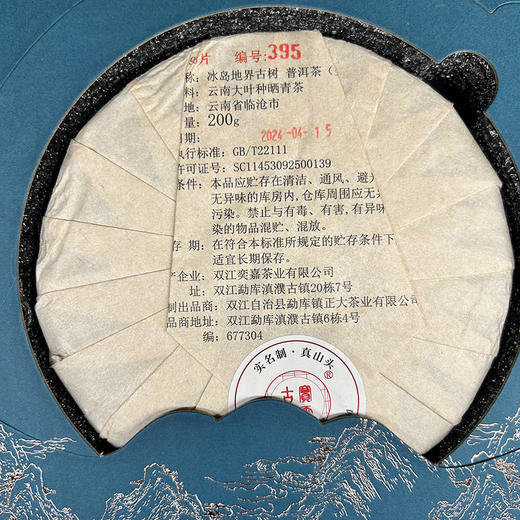 片 编号:395
称: 冰岛地界古树 普洱茶(
料: 云南大叶种晒青茶
地: 云南省临沧市
量: 200g
日期: 2024-04-15
执行标准: GB/T22111
许可证号: SC11453092500139
条件: 本品应贮存在清洁、通风、避
无异味的库房内,仓库周围应无
污染。禁止与有毒、有害,有异味
染的物品混贮、混放。
存 期: 在符合本标准所规定的贮存条件下
适宜长期保存。
产企业: 双江奕嘉茶业有限公司
址: 双江勐库滇濮古镇20栋7号
制出品商: 双江自治县勐库镇正大茶业有限公司
品商地址: 双江勐库滇濮古镇6栋4号
编: 677304
实名制·真山头
®
古 寶